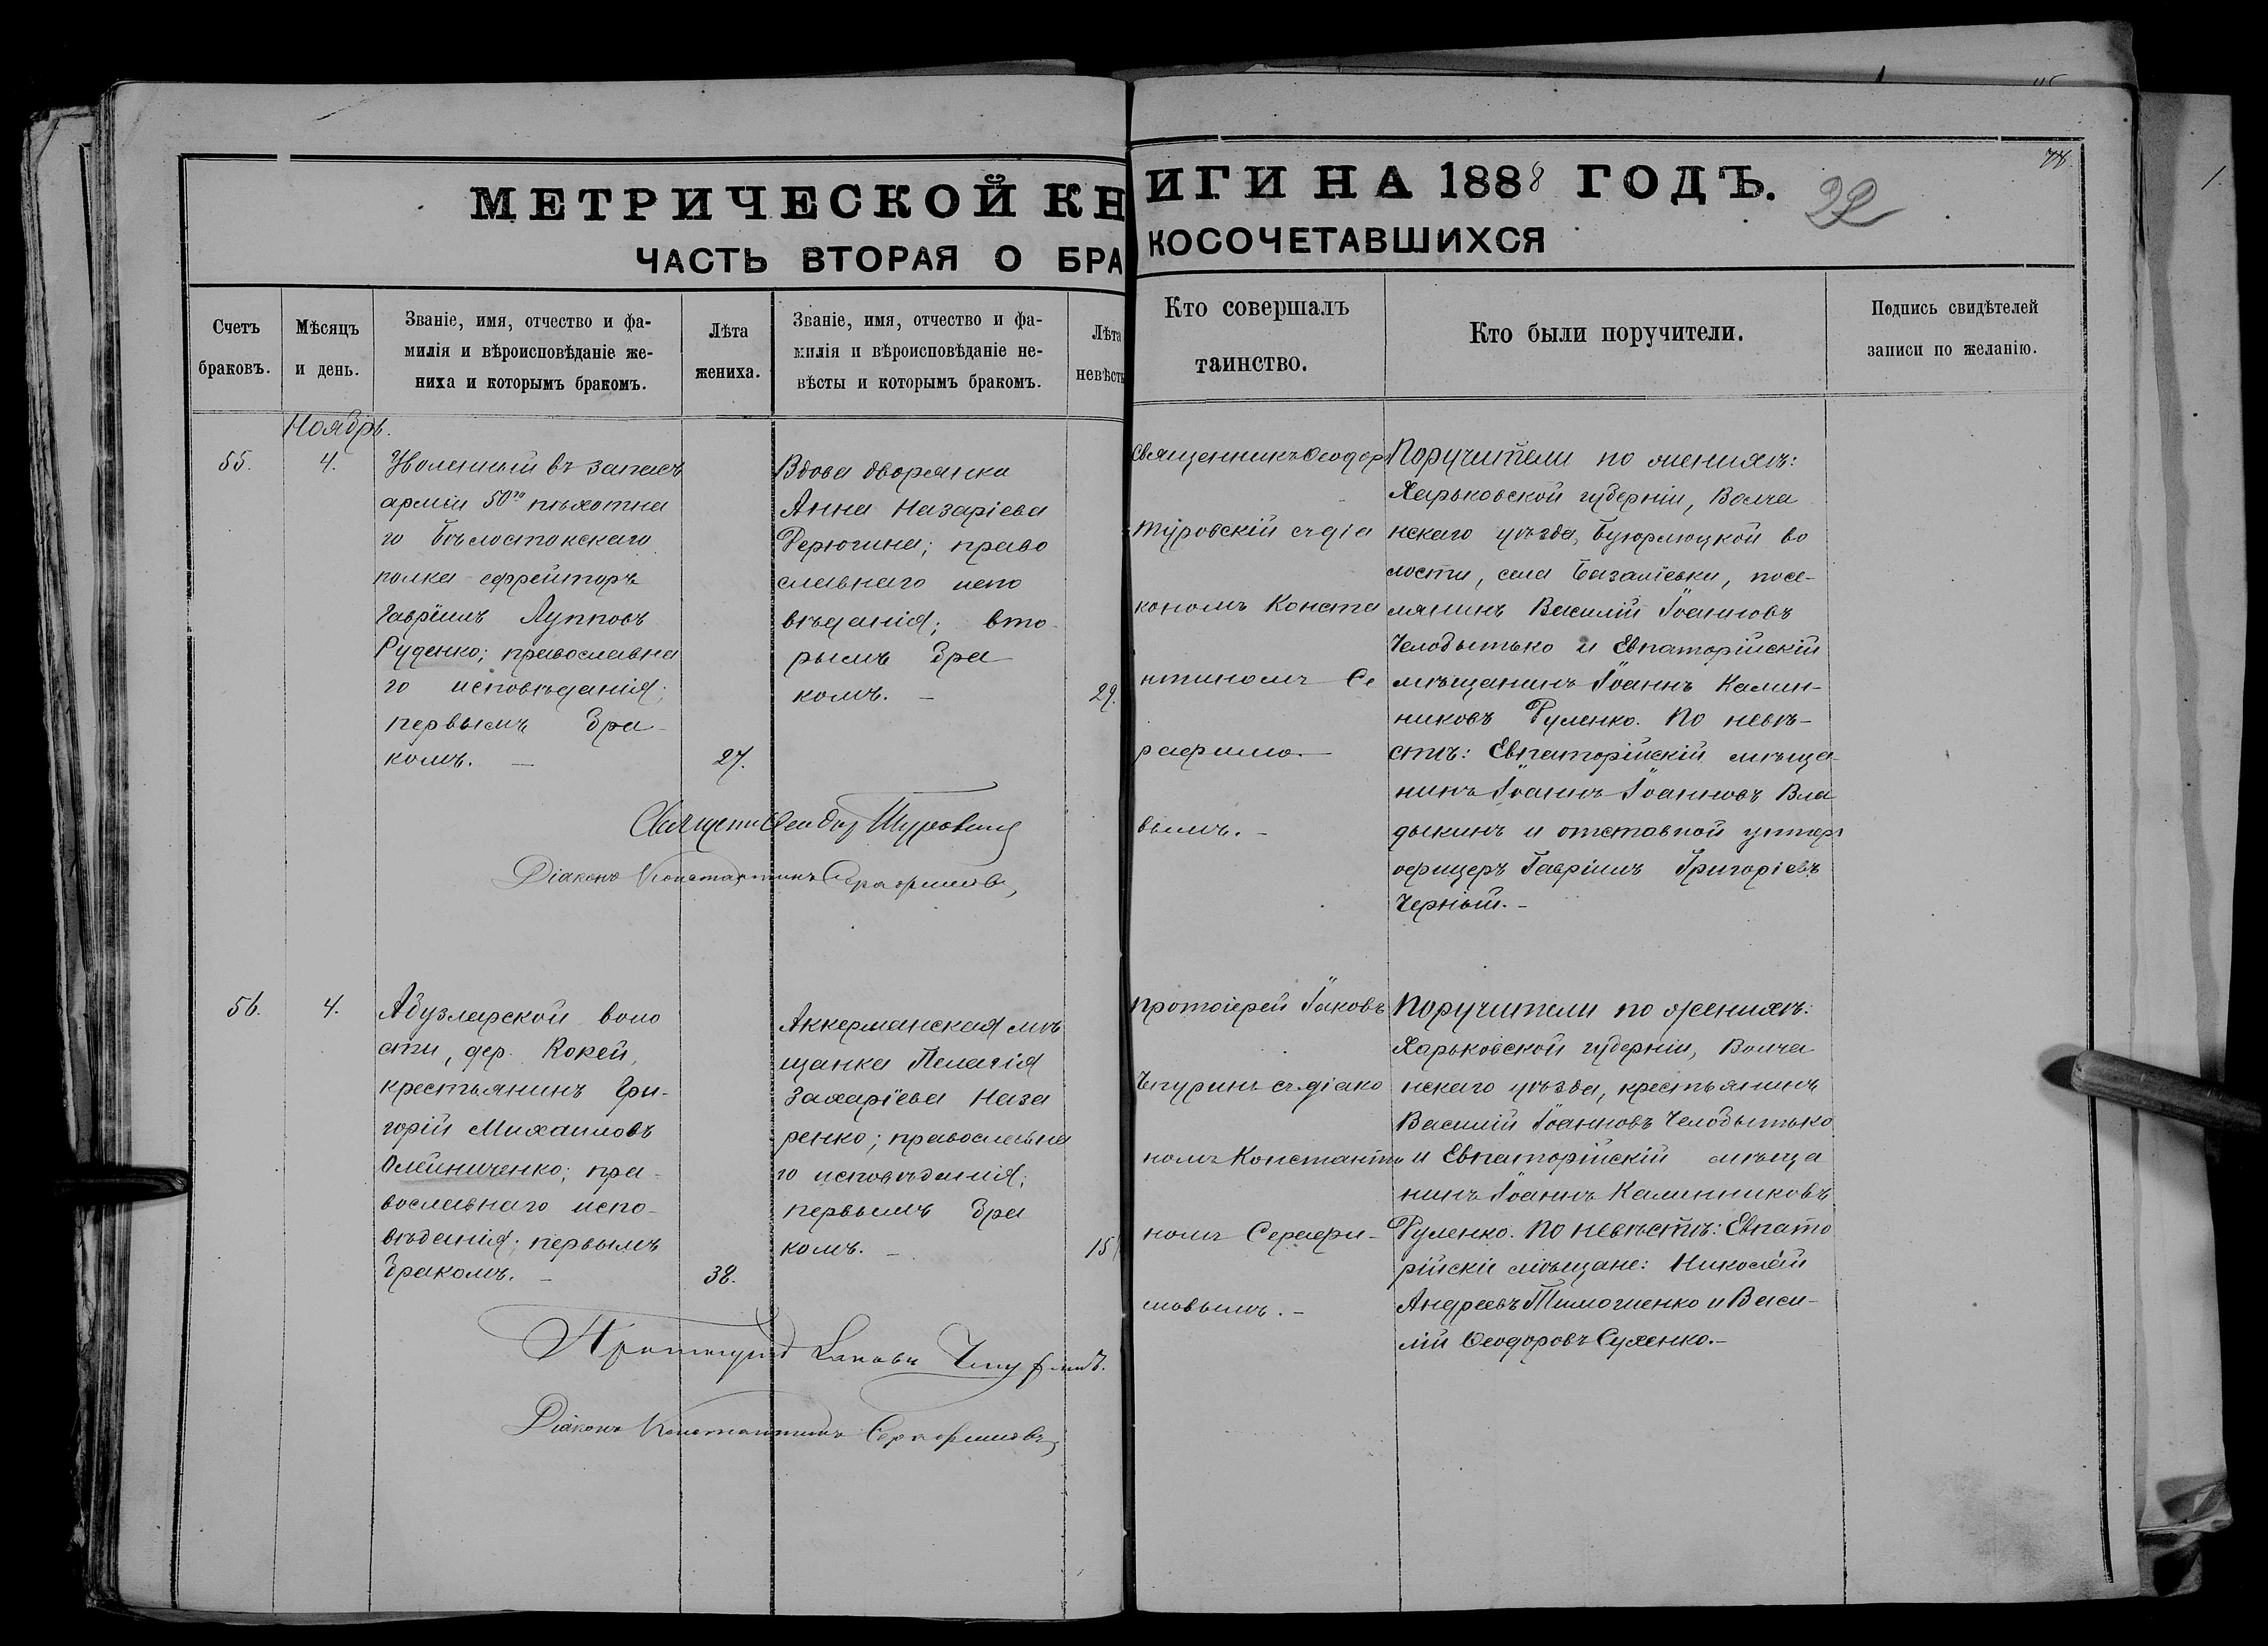 МЕТРИЧЕСКОЙ КНИГИ НА 1888 ГОДЪ.
22
78.
1.
ЧАСТЬ ВТОРАЯ О БРАКОСОЧЕТАВШИХСЯ
Счетъ
браковъ.
Мѣсяцъ
и день.
Званіе, имя, отчество и фа-
милія и вѣроисповѣданіе же-
ниха и которымъ бракомъ.
Лѣта
жениха.
Званіе, имя, отчество и фа-
милія и вѣроисповѣданіе не-
вѣсты и которымъ бракомъ.
Лѣта
невѣсты
Кто совершалъ
таинство.
Кто были поручители.
Подпись свидѣтелей
записи по желанію.
Ноябрь.
55.
4.
Уволенный въ запасъ
арміи 50го пѣхотна
го Бѣлостокскаго
полка ефрейторъ
Гавріилъ Лупповъ
Руденко; православна
го исповѣданія;
первымъ бра-
комъ. —
27.
Вдова дворянка
Анна Назаріева
Дерюгина; право
славнаго испо
вѣданія; вто-
рымъ бра
комъ. —
29.
Священникъ Ѳеодоръ
Туровскій съ діа
кономъ Конста
нтиномъ Се
рафимо—
вымъ. —
Поручители по женихѣ:
Харьковской губерніи, Волча
нскаго уѣзда, Бурлюцкой во
лости, села Базаліевки, посе-
лянинъ Василій Іоанновъ
Челобытько и Евпаторійскій
мѣщанинъ Іоаннъ Калин-
никовъ Руленко. По невѣ-
стѣ: Евпаторійскій мѣща-
нинъ Іоаннъ Іоанновъ Вла
дыкинъ и отставной унтеръ
офицеръ Гавріилъ Григоріевъ
Черный. —
Священн Ѳеодоръ Туровскій
Діаконъ Константинъ Серафимовъ
56.
4.
Абузларской воло
сти, дер. Кокей,
крестьянинъ Гри-
горій Михаиловъ
Олейниченко; пра-
вославнаго испо-
вѣданія; первымъ
бракомъ. —
38.
Аккерманская мѣ
щанка Пелагія
Захаріева Наза
ренко; православна
го исповѣданія;
первымъ бра
комъ. —
15
Протоіерей Іаковъ
Чепуринъ съ діако
номъ Константи
номъ Серафи-
мовымъ. —
Поручители по женихѣ:
Харьковской губерніи, Волча
нскаго уѣзда, крестьянинъ
Василій Іоанновъ Челобытько
и Евпаторійскій мѣща
нинъ Іоаннъ Калинниковъ
Руленко. По невѣстѣ: Евпато
рійскіе мѣщане: Николай
Андреевъ Тимошенко и Васи-
лій Ѳеодоровъ Сухенко. —
Протоіерей Іаковъ Чепуринъ.
Діаконъ Константинъ Серафимовъ